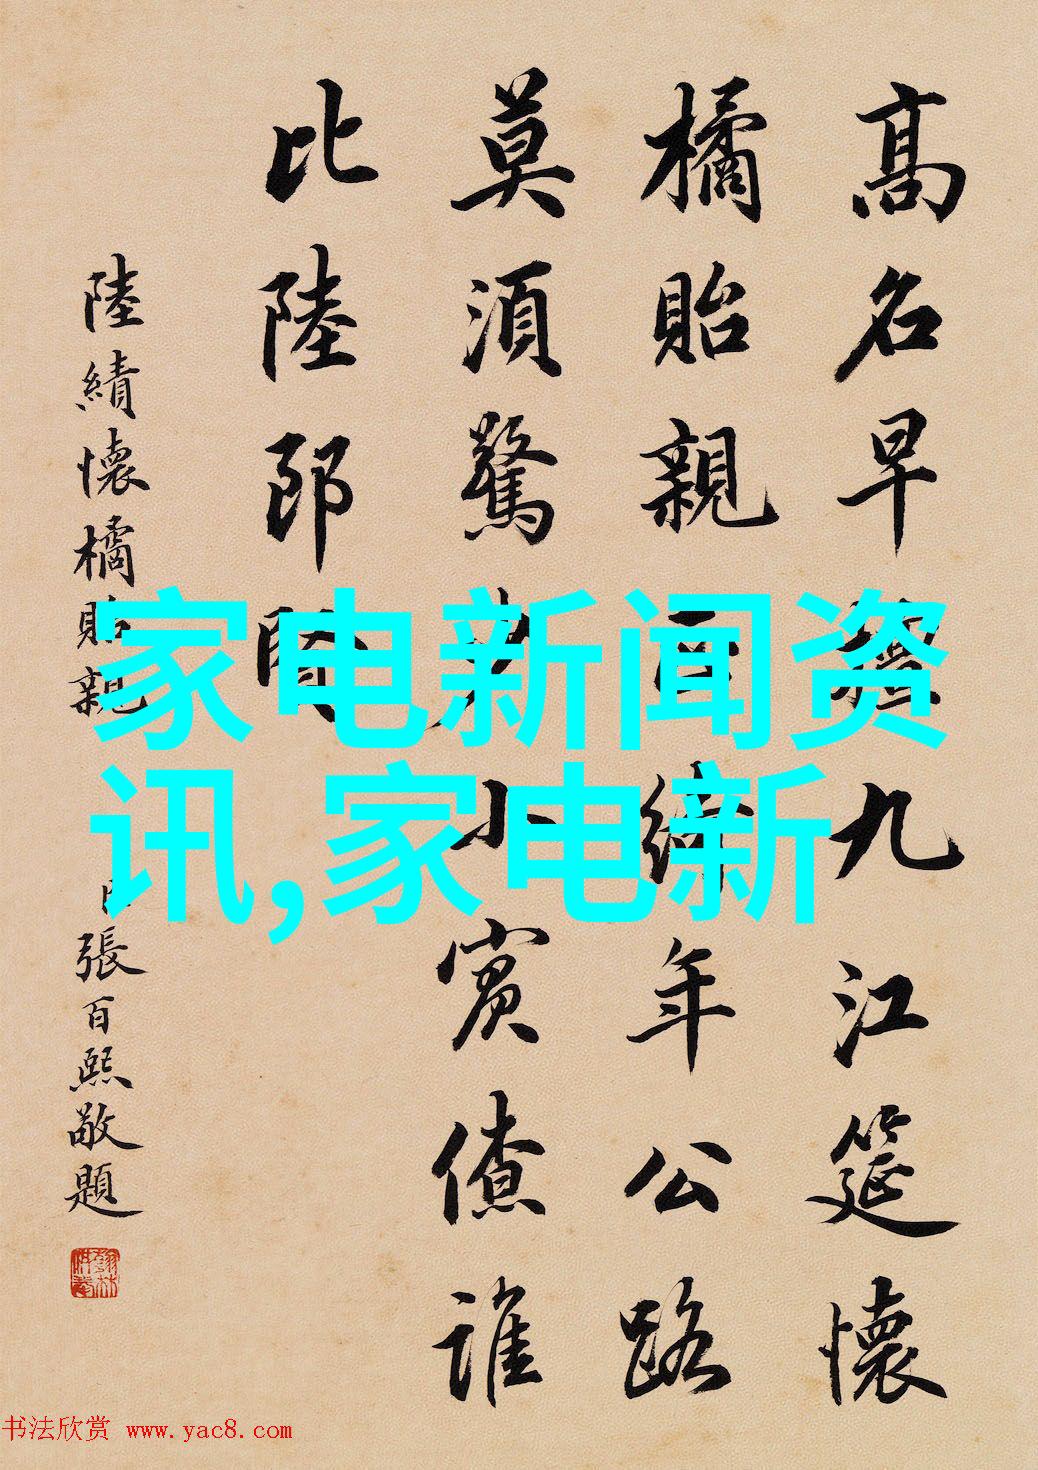 高名早 九江筵懷
橘貽親 年公路
莫須驚 小賓僚誰
比陸郎
陸績懷橘貽親
張百熙敬題
家电新闻资
讯,家电新
书法欣赏 www.yac8.com